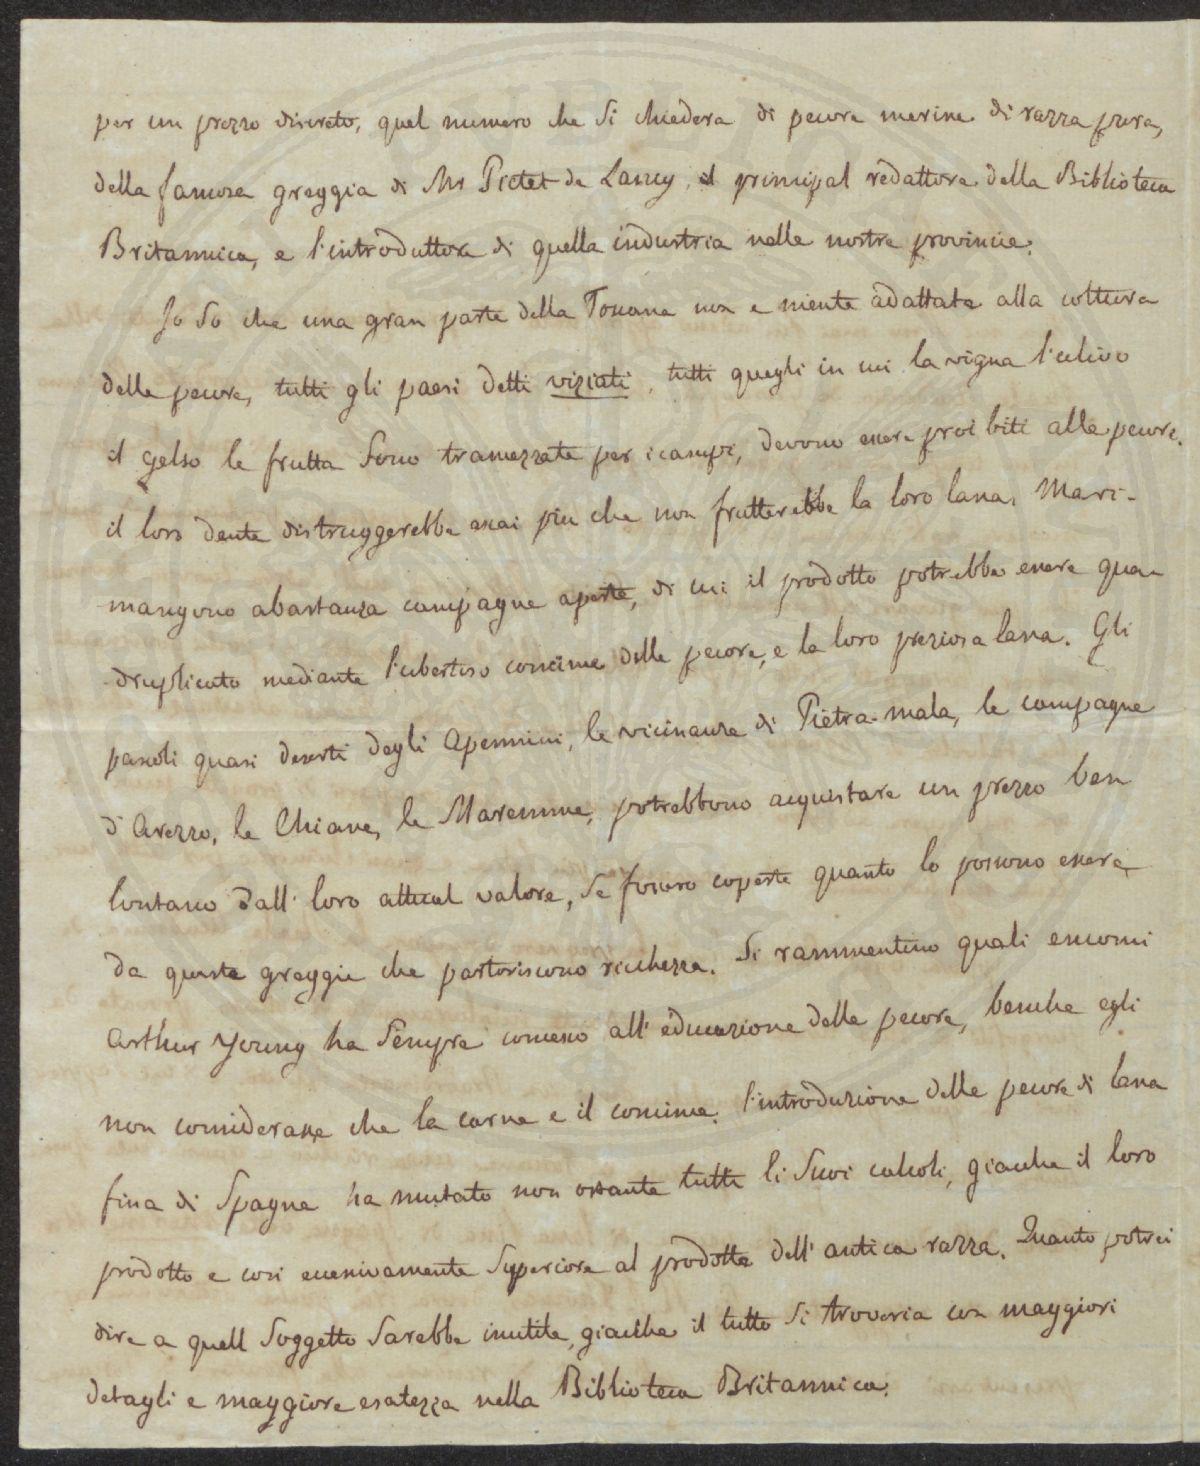 per un prezzo discreto, quel numero che si chiedera di pecore merine di razza pura,
della famosa greggia di Mr Pictet de Lancy, il principal redattore della Biblioteca
Britannica, e l'introduttore di quella industria nelle nostre provincie.
Jo so che una gran parte della Toscana non e niente adattata alla coltura
delle pecore, tutti gli paesi detti viziati, tutti quegli in cui la vigna l'ulivo
il gelso le frutta sono tramezzate per i campi, devono essere proibiti alle pecore.
il loro dente distruggerebbe assai piu che non frutterebbe la loro lana. Ma ri-
mangono abastanza campagne aperte, di cui il prodotto potrebbe essere qua-
druplicato mediante l'ubertoso concime delle pecore, e la loro preziosa lana. Gli
pascoli quasi deserti degli Apennini, le vicinanze di Pietra-mala, le campagne
d'Arezzo, le Chiane, le Maremme, potrebbono acquistare un prezzo ben
lontano dall' loro attual valore, se fossero coperte quanto lo possono essere,
da queste greggie che partoriscono ricchezza. Si rammentino quali encomi
Arthur Young ha sempre concesso all' educazione delle pecore, benche egli
non considerasse che la carne e il concime. l'introduzione delle pecore di lana
fina di Spagna ha mutato non ostante tutti li suoi calcoli, giacche il loro
prodotto e cosi eccessivamente superiore al prodotto dell' antica razza. Quanto potrei
dire a quell soggetto sarebbe inutile, giacche il tutto si troveria con maggiori
detagli e maggiore esatezza nella Biblioteca Britannica.